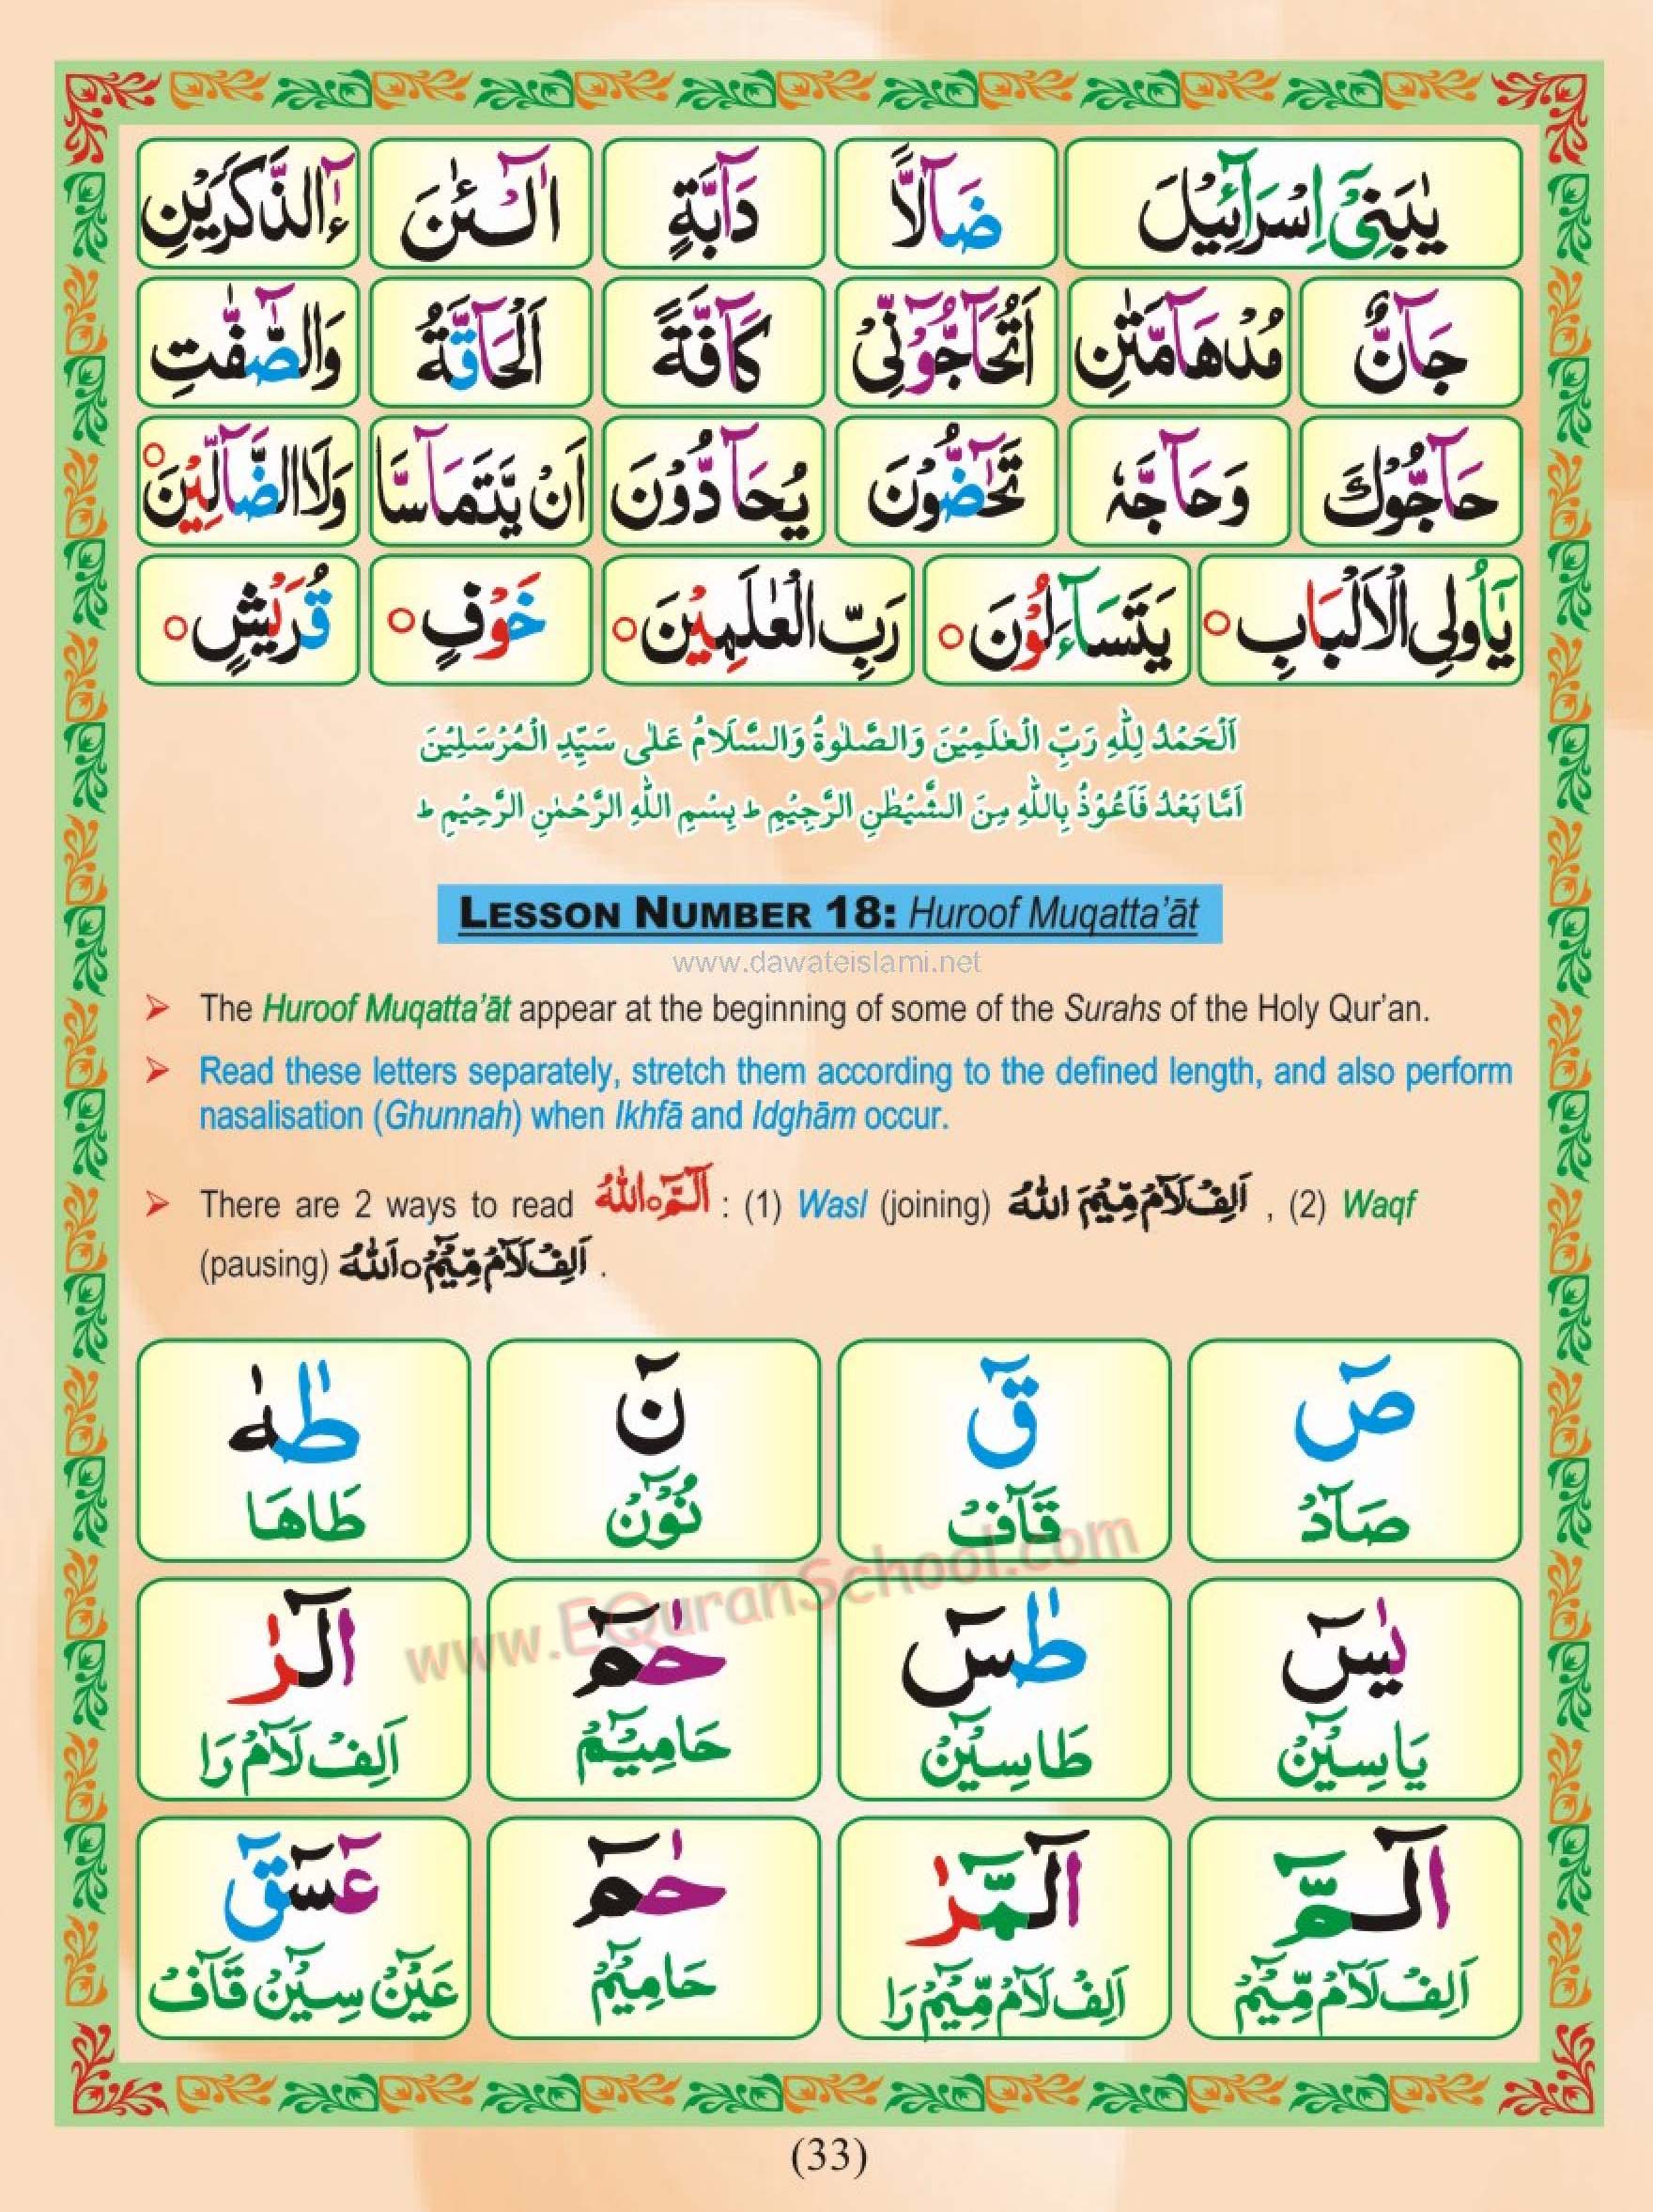 يٰبَنِيْۤ اِسْرَآءِيْلَ ضَآلًّا دَآبَّةٍ آلْـٰٔنَ ءٰٓالذَّكَرَيْنِ
جَآنٌّ مُدْهَآمَّتٰنِ اَتُحَآجُّوْٓنِّيْ كَآفَّةً اَلْحَآقَّةُ وَالصّٰٓفّٰتِ
حَآجُّوْكَ وَحَآجَّهٗ تَحٰٓضُّوْنَ يُحَآدُّوْنَ اَنْ يَّتَمَآسَّا وَلَا الضَّآلِّيْنَ ○
يٰۤاُولِي الْاَلْبَابِ ○ يَتَسَآءَلُوْنَ ○ رَبِّ الْعٰلَمِيْنَ ○ خَوْفٍ ○ قُرَيْشٍ ○
اَلْحَمْدُ لِلّٰهِ رَبِّ الْعٰلَمِيْنَ وَالصَّلٰوةُ وَالسَّلَامُ عَلٰى سَيِّدِ الْمُرْسَلِيْنَ
اَمَّا بَعْدُ فَاَعُوْذُ بِاللّٰهِ مِنَ الشَّيْطٰنِ الرَّجِيْمِ ط بِسْمِ اللّٰهِ الرَّحْمٰنِ الرَّحِيْمِ ط
LESSON NUMBER 18: Huroof Muqatta'āt
www.dawateislami.net
➢ The Huroof Muqatta'āt appear at the beginning of some of the Surahs of the Holy Qur'an.
➢ Read these letters separately, stretch them according to the defined length, and also perform
nasalisation (Ghunnah) when Ikhfā and Idghām occur.
➢ There are 2 ways to read الٓمَّٓ ○ اللّٰهُ : (1) Wasl (joining) اَلِفْ لَآمْ مِّيْمَ اللّٰهُ , (2) Waqf
(pausing) اَلِفْ لَآمْ مِّيْٓمْ ○ اَللّٰهُ .
صٓ قٓ نٓ طٰهٰ
صَآدْ قَآفْ نُوْٓنْ طَاهَا
www.EQuranSchool.com
يٰسٓ طٰسٓ حٰمٓ الٓرٰ
يَاسِيْٓنْ طَاسِيْٓنْ حَامِيْٓمْ اَلِفْ لَآمْ رَا
الٓمّٓ الٓمّٓرٰ حٰمٓ عٓسٓقٓ
اَلِفْ لَآمْ مِّيْٓمْ اَلِفْ لَآمْ مِّيْٓمْ رَا حَامِيْٓمْ عَيْٓنْ سِيْٓنْ قَآفْ
(33)